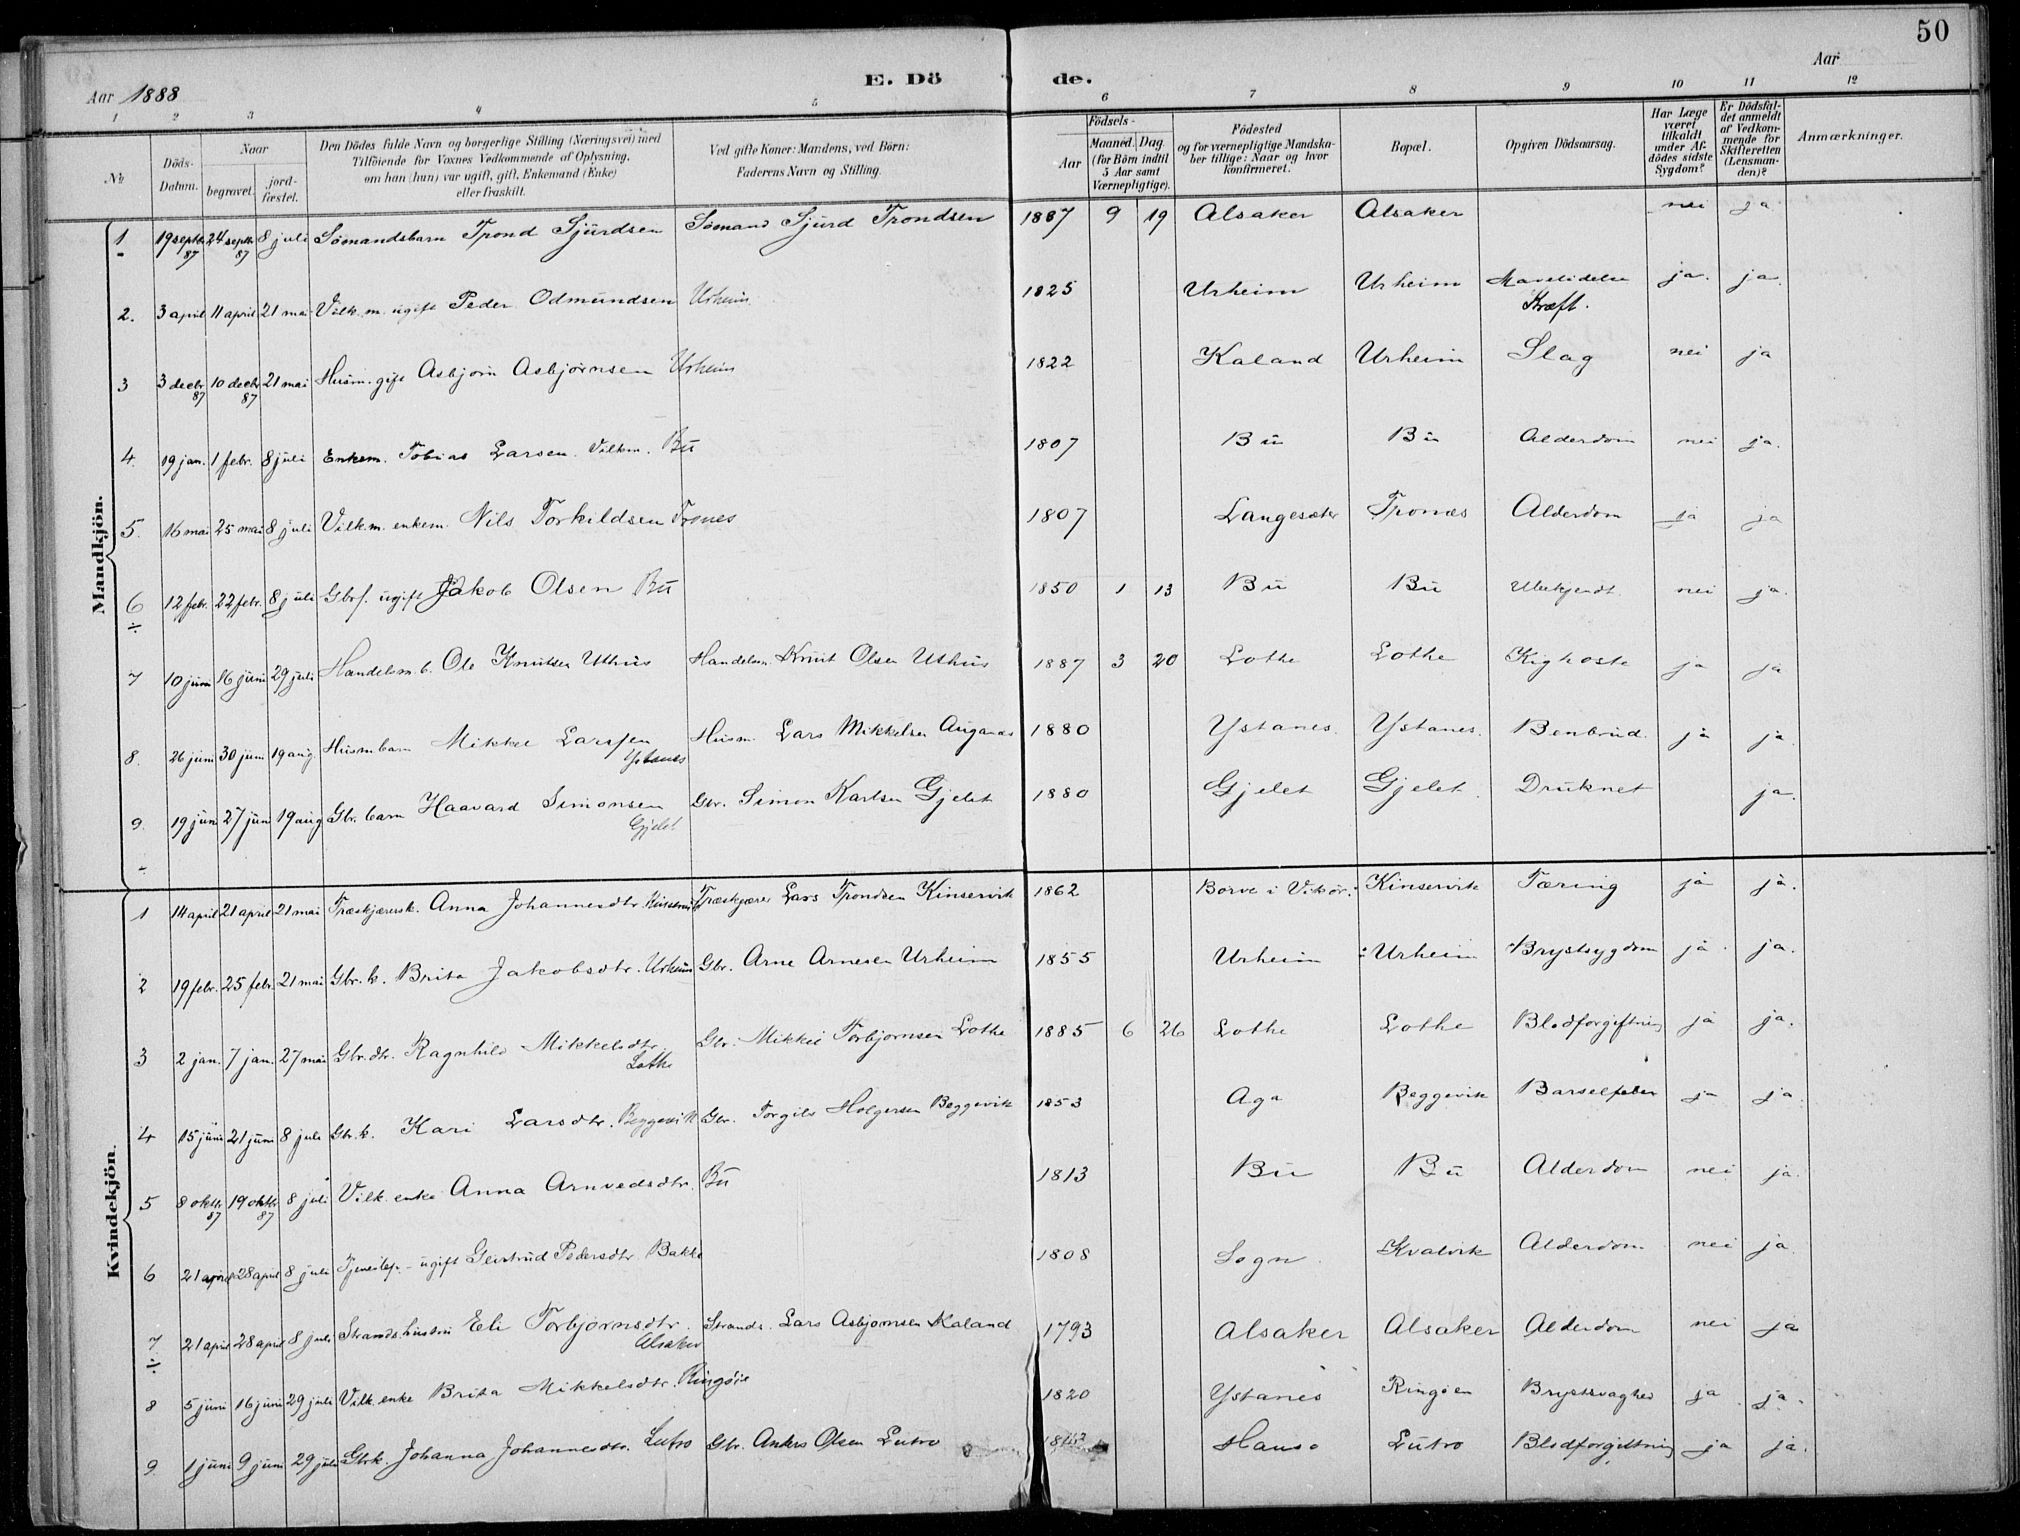 50
E. Dö de.
Aar 1888
Aar
1 2 3 4 5 6 7 8 9 10 11 12
№
Döds-Datum.
Naar
begravet.
jord-fæstet.
Den Dödes fulde Navn og borgerlige Stilling (Næringsvei) med
Tilföiende for Voxnes Vedkommende af Oplysning,
om han (hun) var ugift, gift, Enkemand (Enke)
eller fraskilt.
Ved gifte Koner: Mandens, ved Börn:
Faderens Navn og Stilling.
Födsels-
Aar
Maaned. Dag.
(for Börn indtil
5 Aar samt
Værnepligtige).
Födested
og for værnepligtige Mandska-
ber tillige: Naar og hvor
konfirmeret.
Bopæl.
Opgiven Dödsaarsag.
Har Læge
været
tilkaldt
under Af-
dödes sidste
Sygdom?
Er Dödsfal-
det anmeldt
af Vedkom-
mende for
Skifteretten
(Lensman-
den)?
Anmærkninger.
Mandkjön.
1 19 septbr 87 24 septbr 87 8 juli Sømandsbarn Trond Sjurdsen Sømand Sjurd Trondsen 1887 9 19 Alsaker Alsaker nei ja
2. 3 april 11 april 21 mai Vilk.m. ugift Peder Odmundsen Urheim 1825 Urheim Urheim Mavelidelse Kræft. ja. ja.
3 3 decbr 87 10 decbr 87 21 mai Husm. gift Asbjørn Asbjørnsen Urheim 1822 Kaland Urheim Slag nei ja
4. 19 jan. 1 febr. 8 juli Enkem. Tobias Larsen. Vilkm. Bu 1807 Bu Bu Alderdom nei ja.
5. 16 mai 25 mai 8 juli Vilk.m. enkem. Nils Torkildsen Trones 1807 Langesæter Tronæs Alderdom ja ja
6 ÷ 12 febr. 22 febr. 8 juli Gbrf. ugift Jakob Olsen Bu 1850 1 13 Bu Bu Ubekjendt nei ja.
7 10 juni 16 juni 29 juli Handelsm.b. Ole Knutsen Uthus Handelsm. Knut Olsen Uthus 1887 3 20 Lothe Lothe Kighoste ja ja
8. 26 juni 30 juni 19 aug. Husm.barn Mikkel Larssen Ystanes Husm. Lars Mikkelsen Auganæs 1880 Ystanes. Ystanes. Benbrud. ja ja.
9. 19 juni 27 juni 19 aug Gbr. barn Haavard Simonsen Gjelet Gbr. Simon Karlsen Gjelet 1880 Gjelet Gjelet. Druknet ja.
Kvindekjön.
1 14 april 21 april 21 mai Træskjærersk. Anna Johannesdtr. Kinservik Træskjærer Lars Trondsen Kinservik 1862 Børve i Vikør. Kinservik Tæring ja ja.
2 19 febr. 25 febr. 21 mai Gbr. k. Brita Jakobsdtr. Urheim Gbr. Arne Arnesen Urheim 1855 Urheim Urheim Brystsygdom ja. ja.
3 2 jan. 7 jan. 27 mai Gbr. dtr. Ragnhild Mikkelsdtr. Lothe Gbr. Mikkel Torbjørnsen Lothe 1885 6 26 Lothe Lothe Blodforgiftning ja ja.
4 15 juni 21 juni 8 juli Gbr.k. Kari Larsdtr. Beggevik Gbr. Torgils Holgersen Beggevik 1853 Aga Beggevik Barselfeber ja ja.
5 8 oktbr. 87 19 oktbr. 87 8 juli Vilk. enke Anna Arnvedsdtr. Bu 1813 Bu Bu Alderdom nei ja.
6 21 april 28 april 8 juli Tjenestep.- ugift Geirtrud Pedersdtr. Bakke 1808 Sogn. Kvalvik Alderdom nei ja.
7 ÷ 21 april 28 april 8 juli Strandshustru Eli Torbjørnsdtr. Alsaker Strands. Lars Asbjørnsen Kaland 1793 Alsaker Alsaker Alderdom nei ja
8 5 juni 16 juni 29 juli Vilk. enke Brita Mikkelsdtr. Ringøie 1820 Ystanes Ringøen Brystsvaghed ja. ja.
9 1 juni 9 juni 29 juli Gbrk. Johanna Johannesdtr. Lutro Gbr. Anders Olsen Lutro Hauso Lutro Blodforgiftning ja ja.